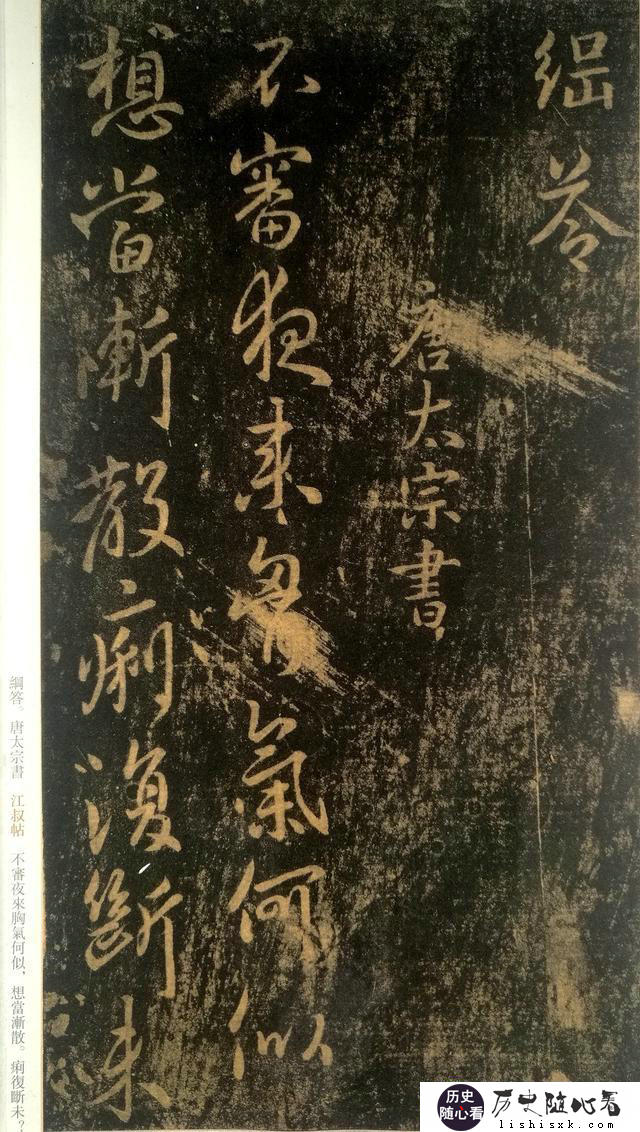 綱答
唐太宗書
不審夜來胷氣何似
想當漸散痢復斷未
綱答。唐太宗書 江叔帖 不審夜來胸氣何似，想當漸散。痢復斷未？
历史随心看
历史随心看
lishisxk.com